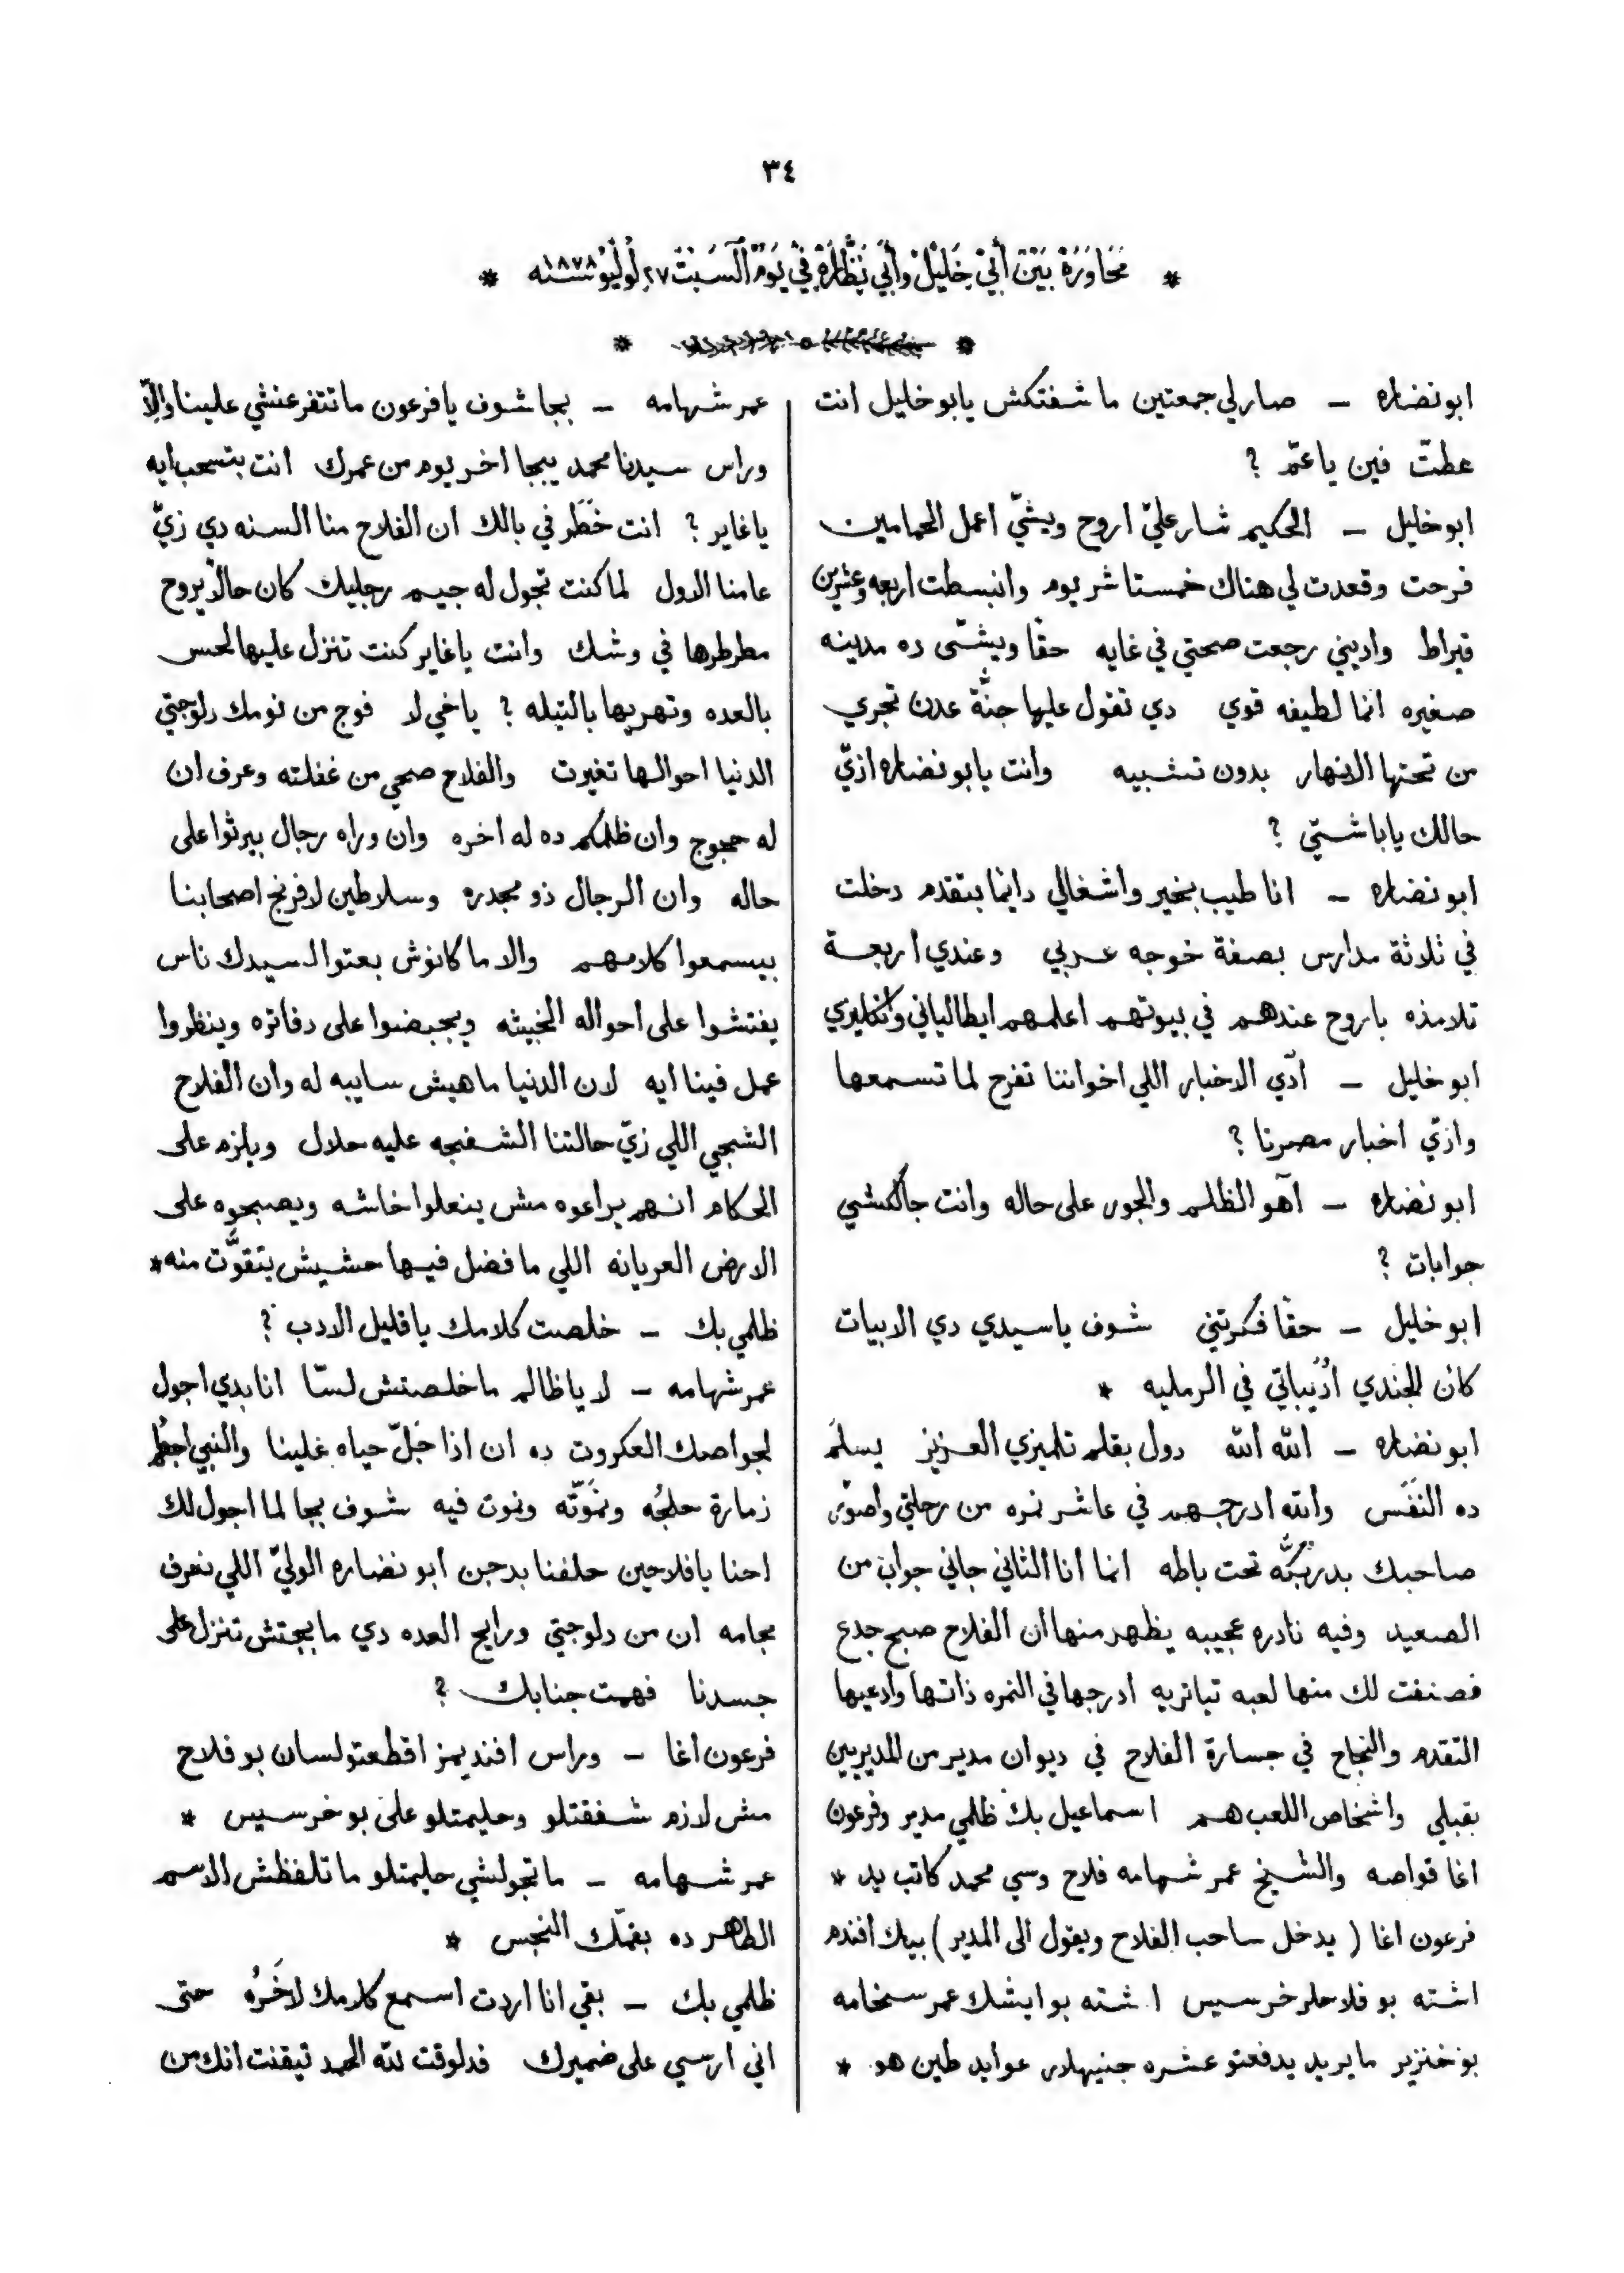 ٣٤
* مَحَاوَرَة بَيْنَ أَبِيْ خَلِيْلْ وأَبِي نَظَّارَة فِيْ يَوْمِ اَلسَّبْتْ ٢٧ لُولْيُو سنه ١٨٧٨ *
ابو نضاره – صار لي جمعتين ما شفتكش يابو خليل انت
عطت فين ياعمّ ?
ابو خليل – الحكيم شار عليّ اروح ويشيّ اعمل الحمامين
فرحت وقعدت لي هناك خمستاشر يوم وانبسطت اربعه وعشرين
قيراط واديني رجعت صحتي في غايه حقا ويشّى ده مدينه
صغيره انما لطيفه قوي دي تقول عليها جنّة عدن تجري
من تحتها الانهار بدون تشبيه وانت يابو نضاره ازيّ
حالك ياباشتّي ?
ابو نضاره – انا طيب بخير واشغالي دايما بتقدم دخلت
في ثلاثة مدارس بصفة خوجه عربي وعندي اربعة
تلامذه باروح عندهم في بيوتهم اعلمهم ايطالياني وانكليزي
ابو خليل – آدي الاخبار اللي اخواننا تفرح لما تسمعها
وازيّ اخبار مصرنا ?
ابو نضاره – آهو الظلم والجور على حاله وانت جالكشي
جوابات ?
ابو خليل – حقا فكرتني شوف ياسيدي دي الابيات
كان الجندي ادّيباتي في الرمليه *
ابو نضاره – الله الله دول بقلم تلميزي العزيز يسلم
ده النفَس والله ادرجهم في عاشر نمره من رحلتي واصوّر
صاحبك بدربُكّه تحت باطه انما انا الثاني جاني جواب من
الصعيد وفيه نادره عجيبه يظهر منها ان الفلاح صبح جدع
فصنفت لك منها لعبه تياتريه ادرجها في النمره ذاتها وادعيها
التقدم والنجاح في جسارة الفلاح في ديوان مدير من المديرين
بقبلي واشخاص اللعب هم اسماعيل بك ظلمي مدير وفرعون
اغا قواصه والشيخ عمر شهامه فلاح وسي محمد كاتب يد *
فرعون اغا ( يدخل ساحب الفلاح ويقول الى المدير ) بيك افندم
اشته بو فلاحلر خرسيس اشته بو ايشك عمر سخامه
بو خنزير ما يريد يدفعتو عشره جنيهلار عوايد طين هو *
عمر شهامه – بجا شوف يا فرعون ما تتفرعنشي علينا والّا
وراس سيدنا محمد يبجا اخر يوم من عمرك انت بتسحب ايه
ياغاير ? انت خَطَر في بالك ان الفلاح منا السنه دي زيّ
عامنا الاول لما كنت تجول له جيم رجليك كان حالًا يروح
مطرطرها في وشك وانت ياغاير كنت تنزل عليها لحس
بالعده وتهريها بالتيله ? ياخي لا فوج من نومك دلوجتي
الدنيا احوالها تغيرت والفلاح صحي من غفلته وعرف ان
له حجوج وان ظلمكم ده له اخره وان وراه رجال بيرثوا على
حاله وان الرجال ذو مجدره وسلاطين لافرنج اصحابنا
بيسمعوا كلامهم والا ما كانوش بعتوا لسيدك ناس
يفتشوا على احواله الخبيثه ويجبضوا على دفاتره وينظروا
عمل فينا ايه لان الدنيا ماهيش سايبه له وان الفلاح
الشجي اللي زيّ حالتنا الشفجه عليه حلال ويلزم على
الحكام انهم يراعوه مش ينعلوا خاشه ويصبحوه على
الارض العريانه اللي ما فضل فيها حشيش يتقوَّت منه *
ظلمي بك – خلصت كلامك يا قليل الادب ?
عمر شهامه – لا ياظالم ما خلصتش لسّا انا بدي اجول
لجواصك العكروت ده ان اذا جَلّ حياه علينا والنبي اجطم
زمارة حلجُه ونمَوّته ونوت فيه شوف بجا لما اجول لك
احنا يا فلاحين حلفنا بدجن ابو نضاره الوليّ اللي نعرف
مجامه ان من دلوجتي ورايح العده دي ما بجتش تنزل على
جسدنا فهمت جنابك ?
فرعون اغا – وراس افنديمز اقطعتو لسان بو فلاح
مش لازم شفقتلو وحليمتلو على بو خرسيس *
عمر شهامه – ما تجولشي حليمتلو ما تلفظش الاسم
الطاهر ده بفمّك النجس *
ظلمي بك – بقي انا اردت اسمع كلامك لاخَرُه حتى
اني ارسي على ضميرك فدلوقت لله الحمد تيقنت انك من